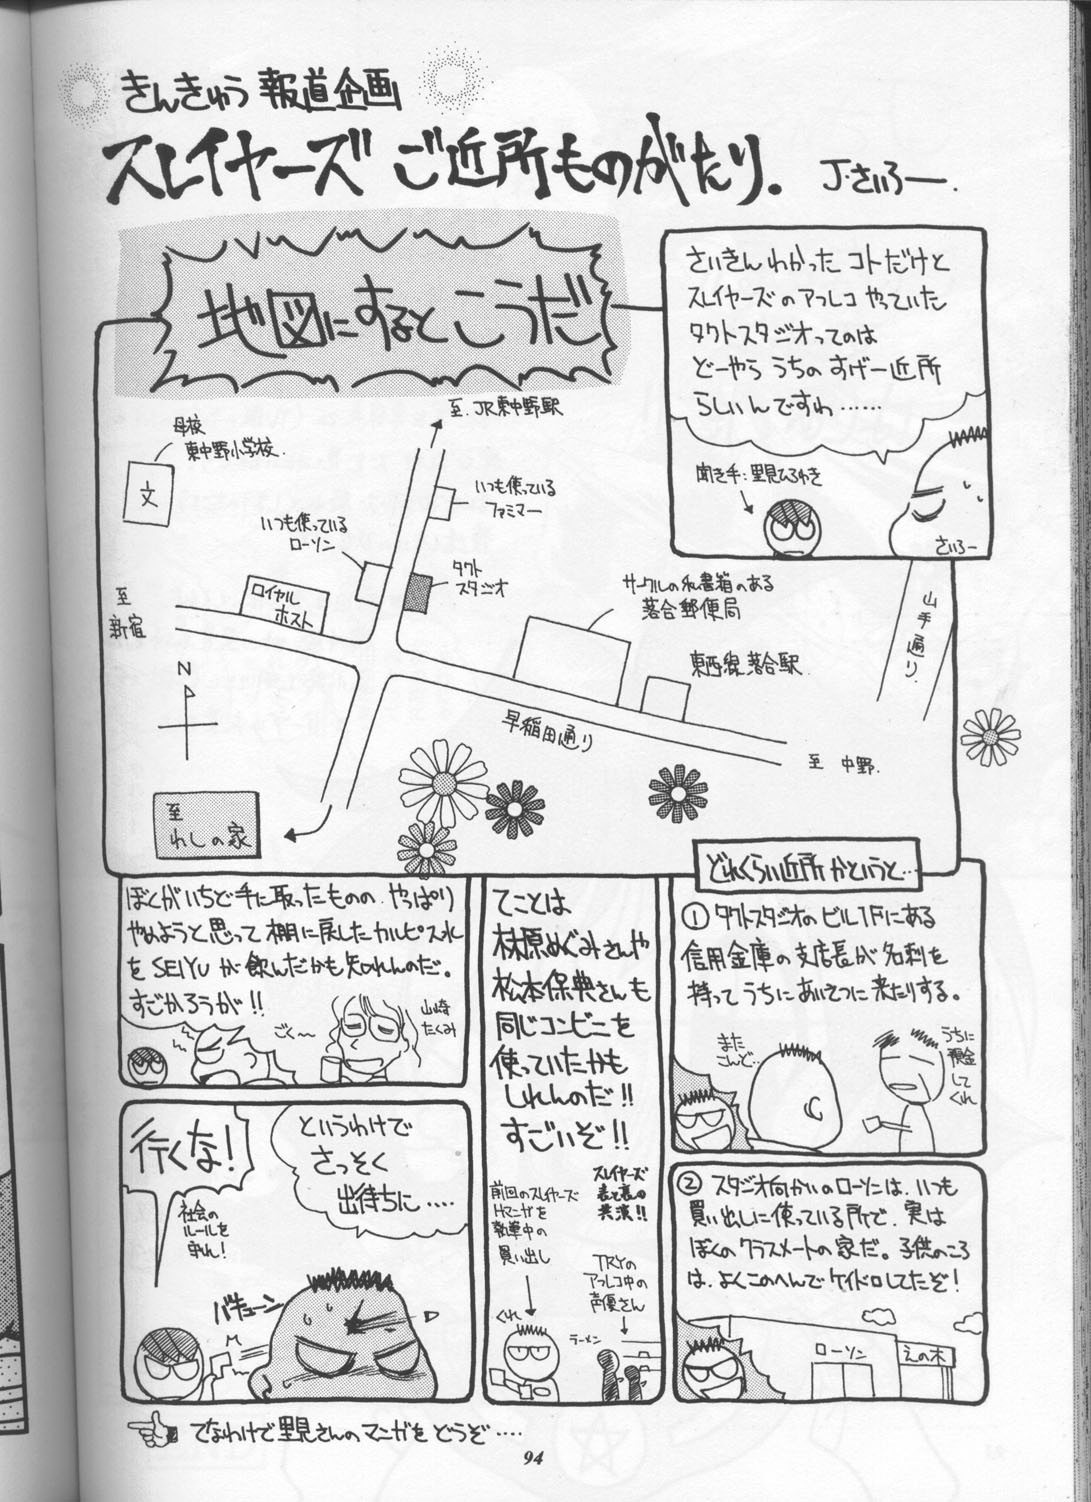 きんきゅう 報道企画
スレイヤーズ ご近所ものがたり.
J・さいろー.
さいきん わかった コトだけと
スレイヤーズ の アフレコ やっていた
タクトスタジオってのは
どーやら うちの すげー近所
らしいんですわ……
聞き手:里見ひろゆき
さいろー
地図にすると こうだ
至. JR東中野駅
母校
東中野小学校.
文
いつも使っている
ファミマー
いつも使っている
ローソン
タクト
スタジオ
ロイヤル
ホスト
至
新宿
サークルの私書箱のある
落合郵便局
東西線落合駅.
山手通り.
N
早稲田通り
至 中野.
至
わしの家
どれくらい近所かというと…
① タクトスタジオのビル1Fにある
信用金庫の支店長が名刺を
持ってうちにあいさつに来たりする。
また
こんど…
うちに
預金
して
くれ
② スタジオ向かいのローソンは、いつも
買い出しに使っている所で、実は
ぼくのクラスメートの家だ。子供のころ
は、よくこのへんでケイドロしてたぞ!
ローソン
えの木
てことは
林原めぐみさんや
松本保典さんも
同じコンビニを
使っていたかも
しれんのだ!!
すごいぞ!!
スレイヤーズ
表と裏の
共演!!
前回のスレイヤーズ
Hマンガを
執筆中の
買い出し
TRYの
アフレコ中の
声優さん
ラーメン
ぼくがいちど手に取ったものの、やっぱり
やめようと思って棚に戻したカルピス水
を SEIYUが飲んだかも知れんのだ。
すごかろうが!!
ごく〜
山崎
たくみ
というわけで
さっそく
出待ちに….
行くな!
社会の
ルールを
守れ!
バキューン
てなわけで里見さんのマンガをどうぞ….
94